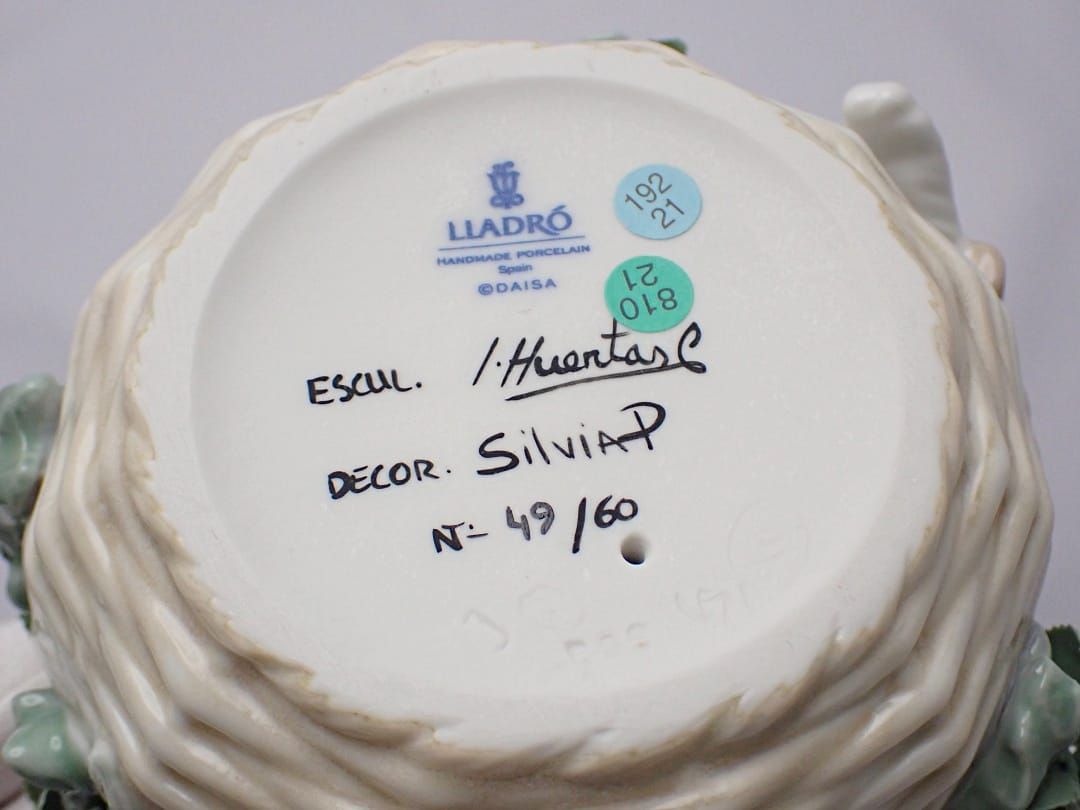 LLADRÓ
HANDMADE PORCELAIN
Spain
©DAISA
192
21
810
21
ESCUL. I. Huertas G
DECOR. Silvia P
Nº 49/60